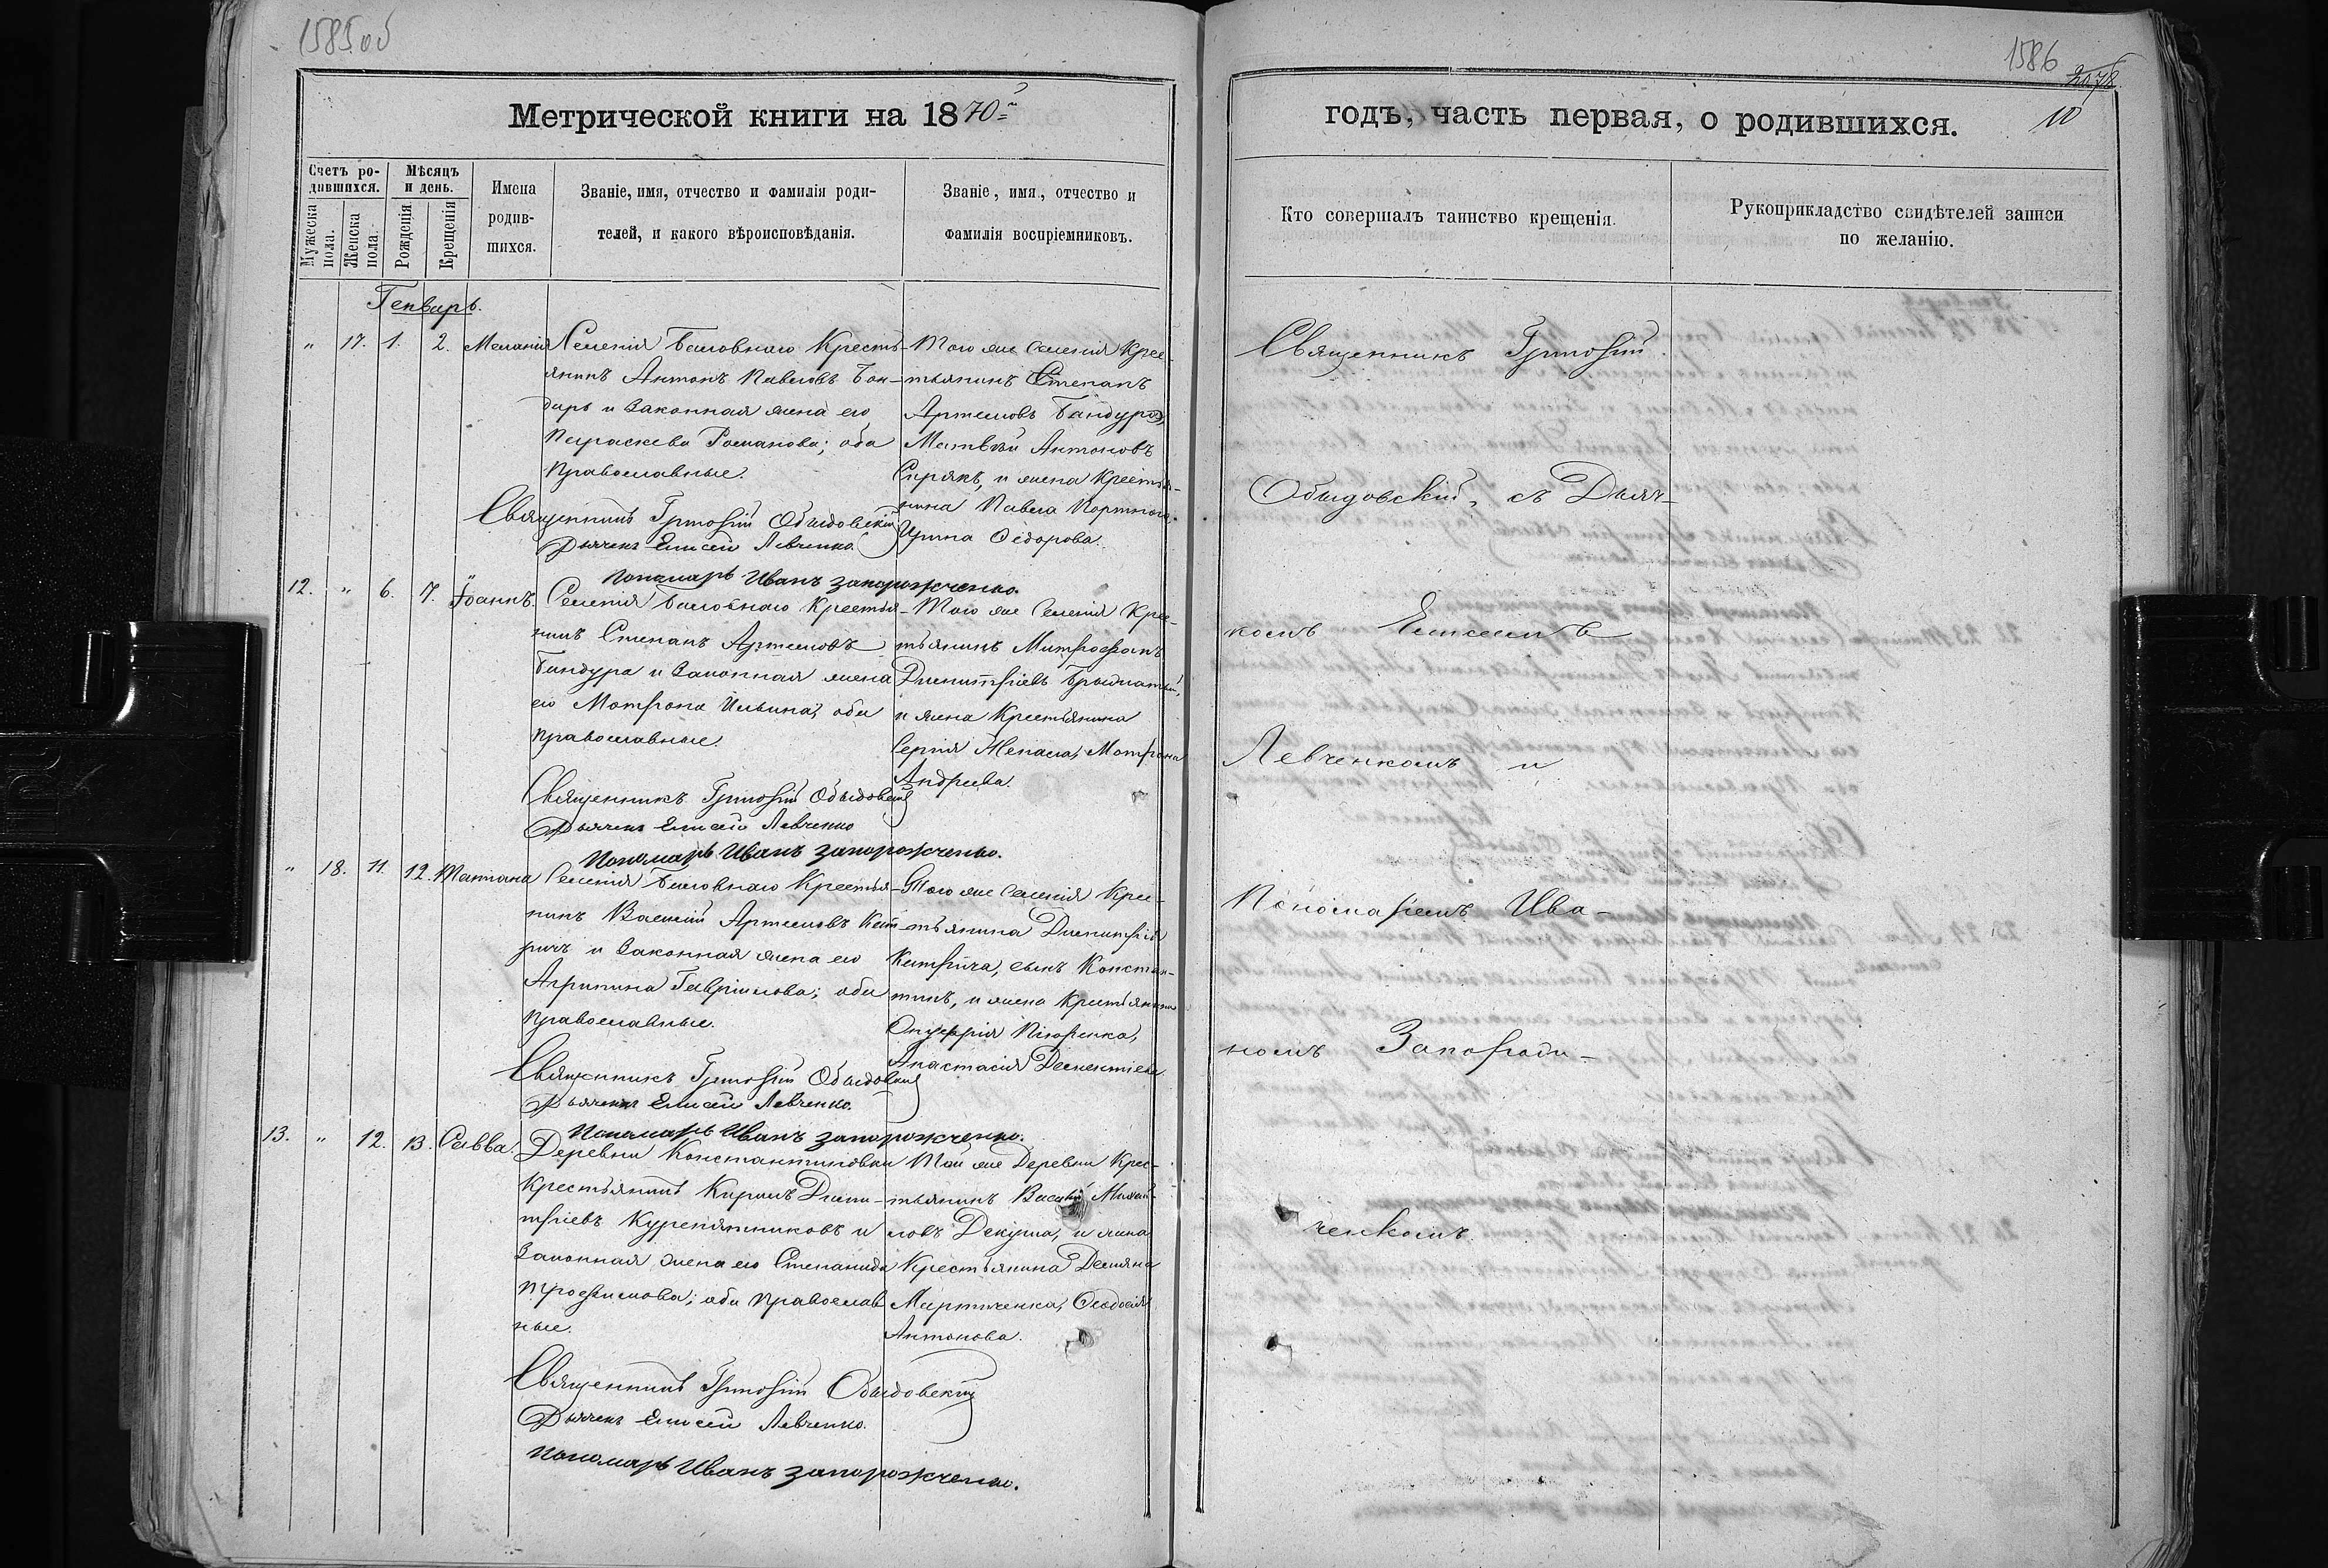 1585об
Метрической книги на 1870
Счетъ ро-
дившихся.
Мужеска
пола.
Женска
пола.
Мѣсяцъ
и день.
Рожденія
Крещенія
Имена
родив-
шихся.
Званіе, имя, отчество и фамилія роди-
телей, и какого вѣроисповѣданія.
Званіе, имя, отчество и
фамилія воспріемниковъ.
Генварь.
" 17. 1. 2. Меланія
Селенія Баловнаго Кресть-
янинъ Антонъ Павловъ Бон-
дарь и законная жена его
Параскева Романова; оба
Православные.
Священникъ Григорій Обыдовскій
Дьячекъ Елисей Левченко.
Пономарь Иванъ Запорожченко.
Того же Селенія Крес-
тьянинъ Степанъ
Артемовъ Бандура,
Матвѣй Антоновъ
Сирякъ, и жена Крестья-
нина Павла Портнога
Ирина Ѳедорова.
12. " 6. 7. Іоаннъ.
Селенія Баловнаго Крестья-
нинъ Степанъ Артемовъ
Бандура и Законная жена
его Матрона Ильина, оба
православные.
Священникъ Григорій Обыдовскій
Дьячекъ Елисей Левченко
Пономарь Иванъ Запорожченко.
Того же Селенія Крес-
тьянинъ Митрофанъ
Димитріевъ
и жена Крестьянина
Сергія Матрона
Андреева.
" 18. 11. 12. Татіана
Селенія Баловнаго Крестья-
нинъ Василій Артемовъ Кит-
ричъ и Законная жена его
Агрипина Гавріилова; оба
Православные.
Священникъ Григорій Обыдовскій
Дьячекъ Елисей Левченко.
Пономарь Иванъ Запорожченко.
Того же Селенія Крес-
тьянина Димитрія
Китрича, сынъ Констан-
тинъ, и жена Крестьянина
Онуфрія
Анастасія Дементіева
13. " 12. 13. Савва.
Деревни Константиновки
Крестьянинъ Кирилъ Дими-
тріевъ Курепятниковъ и
Законная жена его Степанида
Трофимова; оба Православ
ные.
Священникъ Григорій Обыдовскій
Дьячекъ Елисей Левченко.
Пономарь Иванъ Запорожченко.
Той же Деревни Крес-
тьянинъ Василій Михай-
ловъ и жена
Крестьянина Демяна
Мартыненка, Ѳеодосія
Антонова.
1586
2078
10
годъ, часть первая, о родившихся.
Кто совершалъ таинство крещенія.
Рукоприкладство свидѣтелей записи
по желанію.
Священникъ Григорій
Обыдовскій, съ Дьяч-
комъ Елисеемъ
Левченкомъ и
Пономаремъ Ива-
номъ Запорож-
ченкомъ.